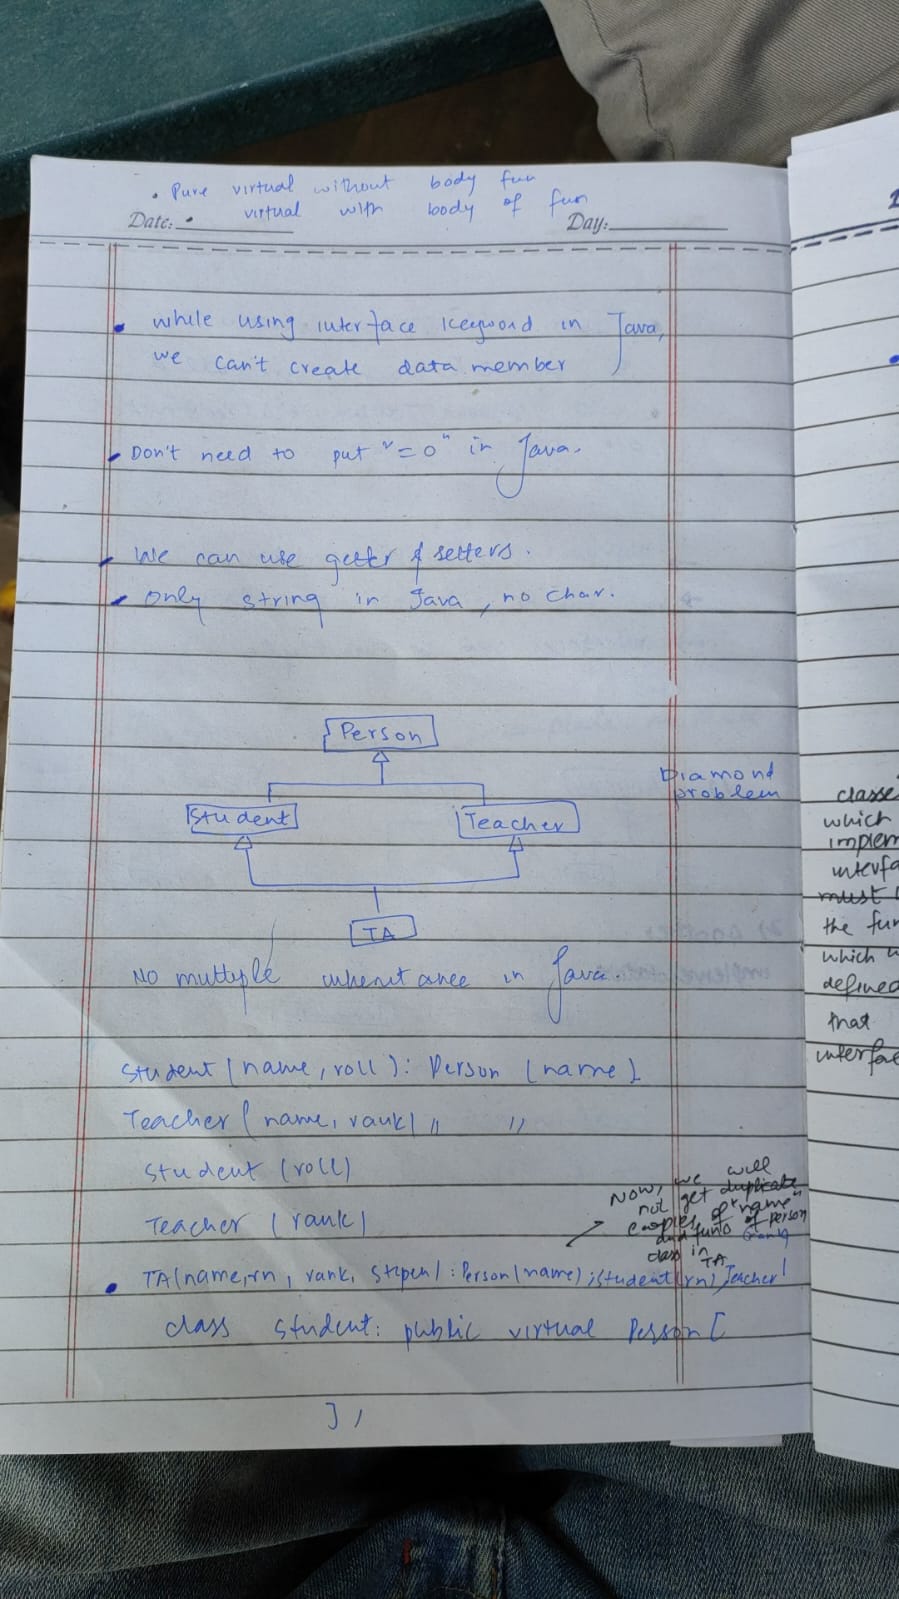 . Pure virtual without body fun
Date: • virtual with body of fun Day:
• while using interface keyword in Java,
we can't create data member
• Don't need to put "=0" in Java.
• We can use getter & setters.
• Only string in Java, no char.
Person
Diamond
problem
Student Teacher
TA
No multiple inheritance in Java.
Student (name, roll): Person (name)
Teacher (name, rank) " "
Student (roll)
Teacher (rank)
Now, we will
not get duplicate
copies of "name"
and func of person
class in TA
• TA(name, rn, rank, stipen) : Person(name); Student (rn) Teacher
(rank)
class Student: public virtual Person {
} ,
classe
which
implem
interfa
must
the fun
which
defined
that
interfac